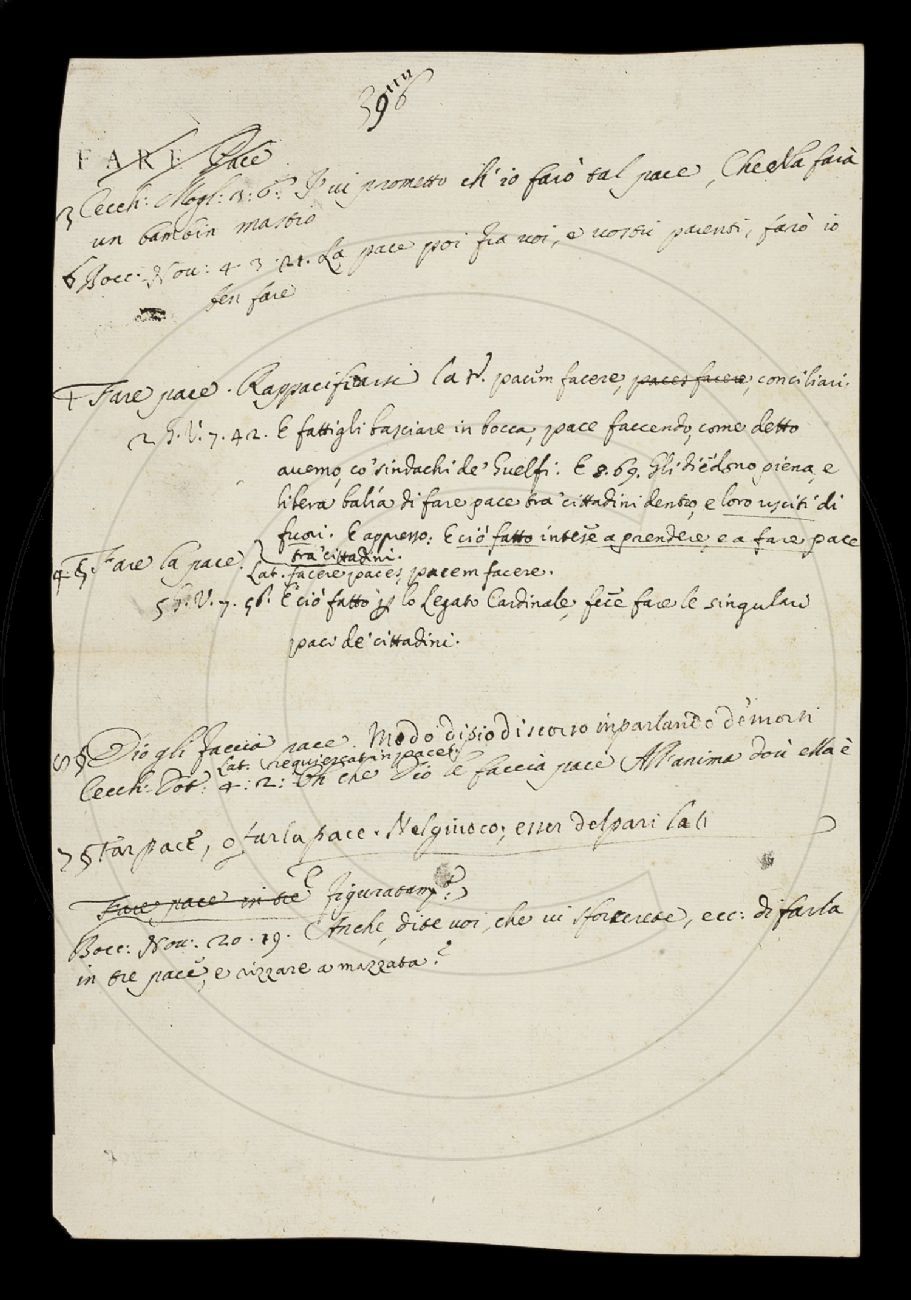 396
FARE Pace
3 Cecch: Mogl: 3: 6: Io vi prometto ch'io farò tal pace, Che ella farà
un bambin mastio
6 Bocc: Nov: 4. 3. 21. La pace poi fra voi, e vostri parenti, farò io
ben fare
1 Fare pace. Rappacificarsi Lat. pacem facere, paces facere, conciliari.
2 G. V. 7. 42. E fattigli basciare in bocca, pace faccendo, come detto
avemo, co' sindachi de' Guelfi: E 8. 69. Gli diedono piena, e
libera balía di fare pace tra' cittadini dentro, e loro usciti di
fuori. E appresso: E ciò fatto intese a prendere, e a fare pace
tra' cittadini.
4 § Fare la pace.
Lat. facere paces, pacem facere.
5 G. V. 7. 56. E ciò fatto lo Legato Cardinale, fece fare le singulari
paci de' cittadini.
8 § Dio gli faccia pace. Modo di pio discorso in parlando de' morti
Lat. requiescat in pace
Cecch: Dot: 4: 2: Oh che Dio le faccia pace All'anima dov' ella è
7 § Far pace, o farla pace. Nel giuoco, esser del pari Lat.
Fare pace in tre figuratam:
Bocc: Nov: 20. 19. Anche dite voi, che vi sforcerete, ecc: di farla
in tre pace, e rizzare a mazzata?